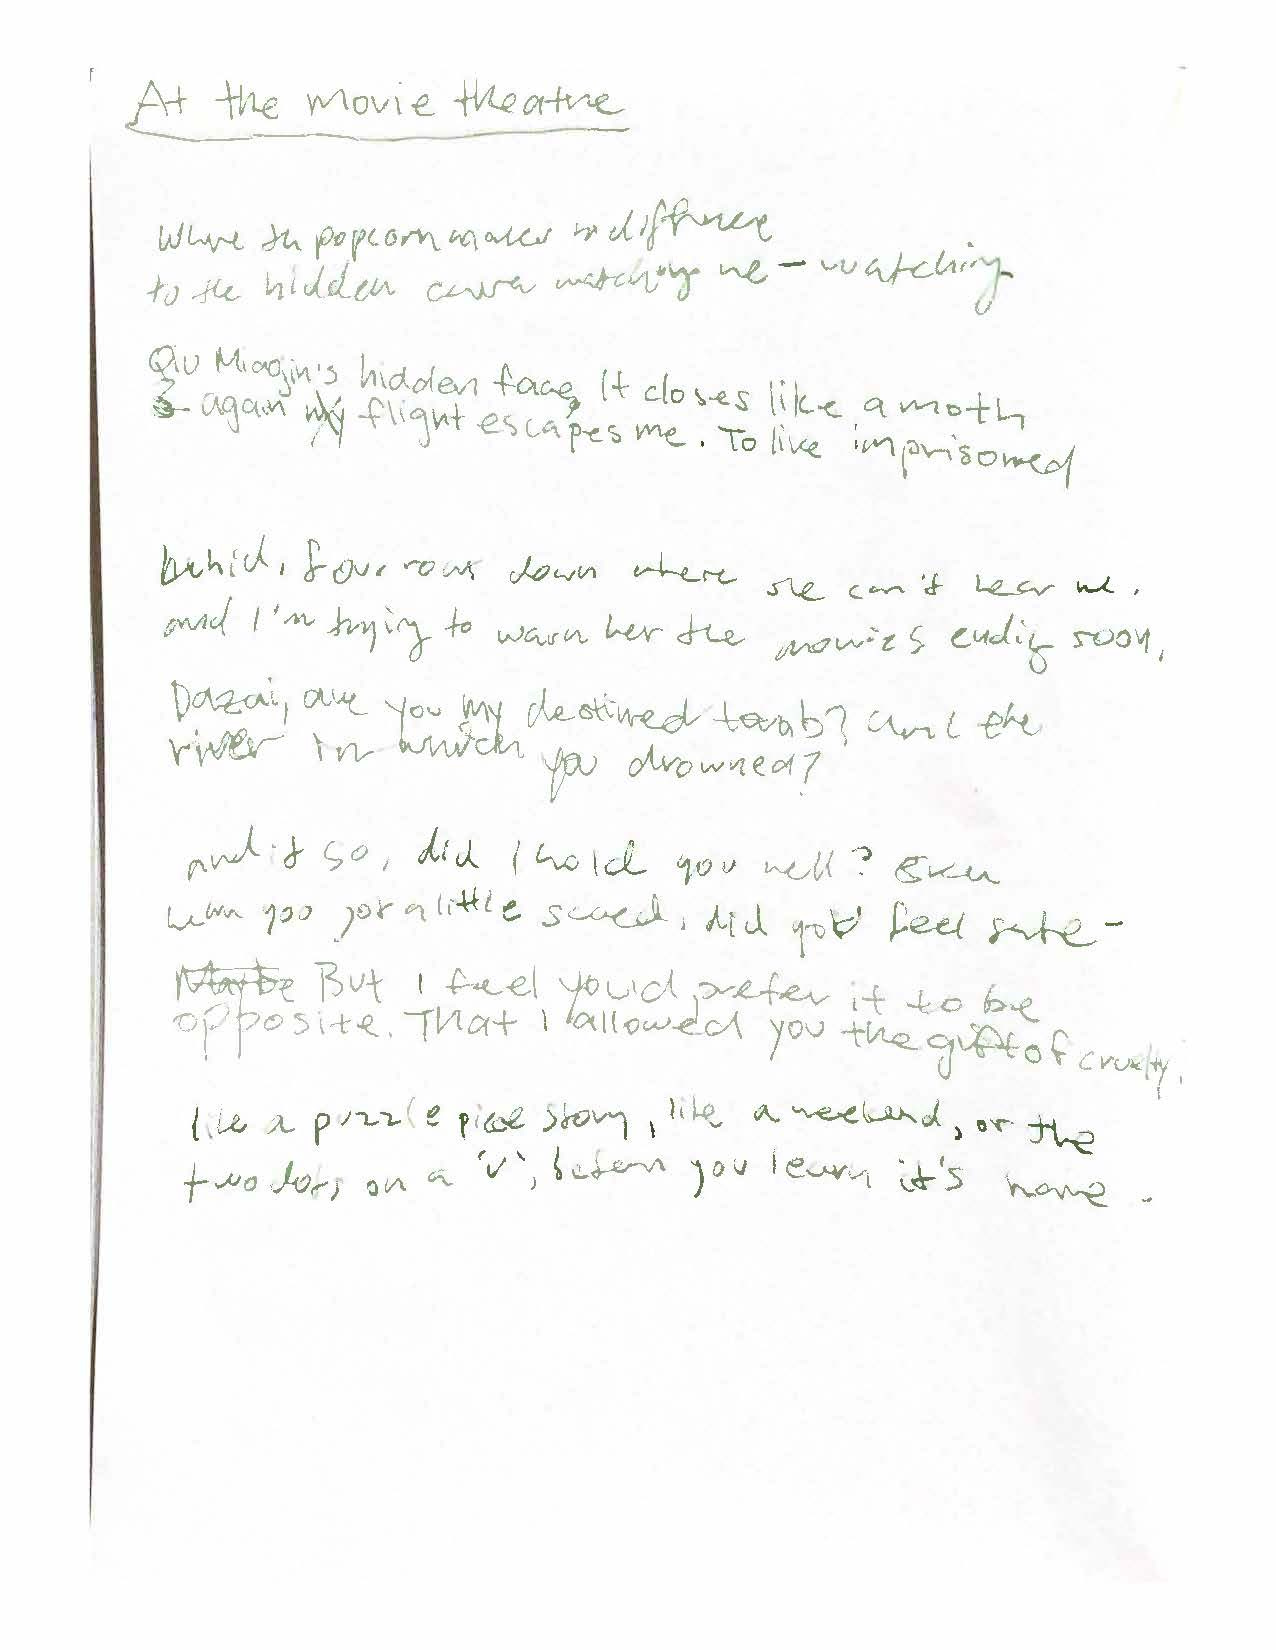 At the movie theatre
Where the popcorn makes indifference
to the hidden camera watching me - watching
Qiu Miaojin's hidden face, It closes like a moth
& again my flight escapes me. To live imprisoned
behid, four rows down where she can't hear me.
and I'm trying to warn her the movies endig soon,
Dazai, are you my destined tomb? Am I the
river in which you drowned?
And if so, did I hold you well? Even
when you got a little scared, did you feel safe -
Maybe But I feel you'd prefer it to be
opposite. That I allowed you the gift of cruelty.
like a puzzle piece story, like a weekend, or the
two dots on a 'v', before you learn it's name.